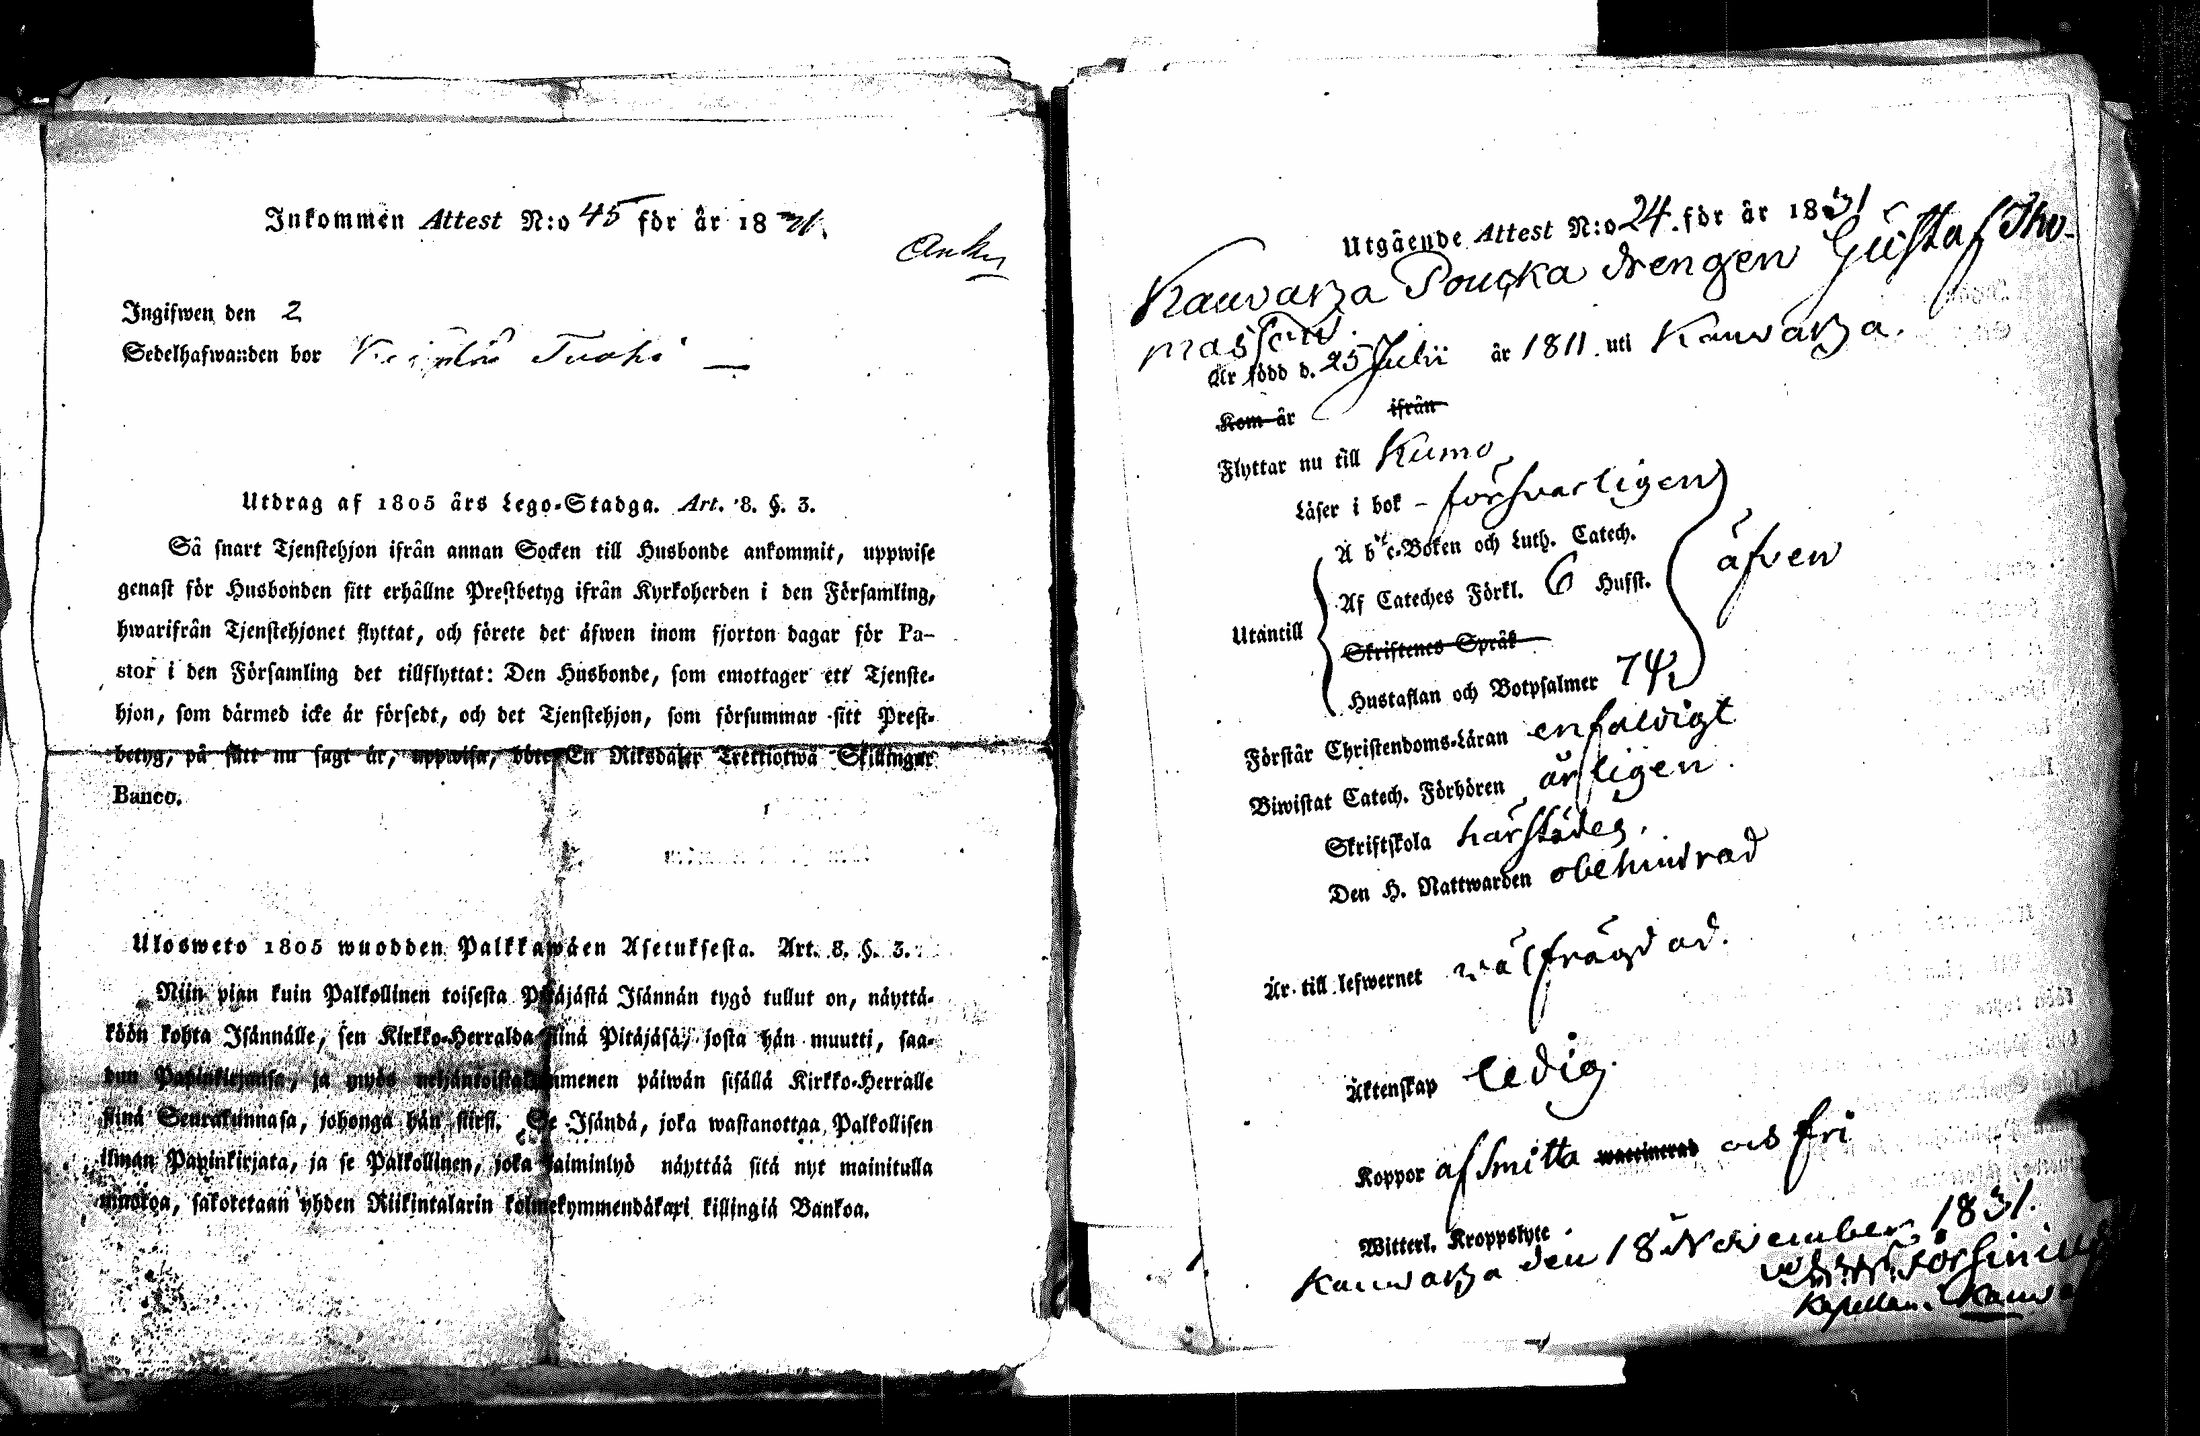 Inkommen Attest N:o 45 för år 1831.
Ingifwen den 2
Sedelhafwanden bor
Utdrag af 1805 års Lego-Stadga. Art. 8. §. 3.
Så snart Tjenstehjon ifrån annan Socken till Husbonde ankommit, uppwise
genast för Husbonden sitt erhållne Prestbetyg ifrån Kyrkoherden i den Församling,
hwarifrån Tjenstehjonet flyttat, och förete det äfwen inom fjorton dagar för Pa-
stor i den Församling det tillflyttat: Den Husbonde, som emottager ett Tjenste-
hjon, som därmed icke är försedt, och det Tjenstehjon, som försummar sitt Prest-
betyg, på sätt nu sagt är, uppwisa, böte En Riksdaler Trettiotwå Skillingar
Banco.
Ulosweto 1805 wuodden Palkkawäen Asetuksesta. Art. 8. §. 3.
Niin pian kuin Palkollinen toisesta Pitäjästä Isännän tygö tullut on, näyttä-
köön kohta Isännälle, sen Kirkko-Herralda siinä Pitäjäsä, josta hän muutti, saa-
dun Papinkirjansa, ja myös neljäntoistakymmenen päiwän sisällä Kirkko-Herralle
siinä Seurakunnasa, johonga hän siirsi. Se Isändä, joka wastanottaa Palkollisen
ilman Papinkirjata, ja se Palkollinen, joka laiminlyö näyttää sitä nyt mainitulla
muotoa, sakotetaan yhden Riikintalarin kolmekymmendäkaxi killingiä Bankoa.
Utgående Attest N:o 24. för år 1831
Kauvatza Pouska drengen Gustaf Tho-
masson.
Är född d. 25 Julii år 1811. uti Kauvatza.
Kom år ifrån
Flyttar nu till Kumo
Läser i bok - försvarligen
A b c-Boken och Luth. Catech.
Utantill Af Cateches Förkl. 6 Hufst. äfven
Skriftenes Språk
Hustaflan och Botpsalmer 74
Förstår Christendoms-Läran enfaldigt
Biwistat Catech. Förhören årligen.
Skriftskola härstädes.
Den H. Nattwarden obehindrad
Är till lefwernet välfrägdad.
Äktenskap ledig.
Koppor af Smitta waccinerad och fri
Witterl. Kroppslyte
Kauvatza den 18 November 1831.
Kapellan i